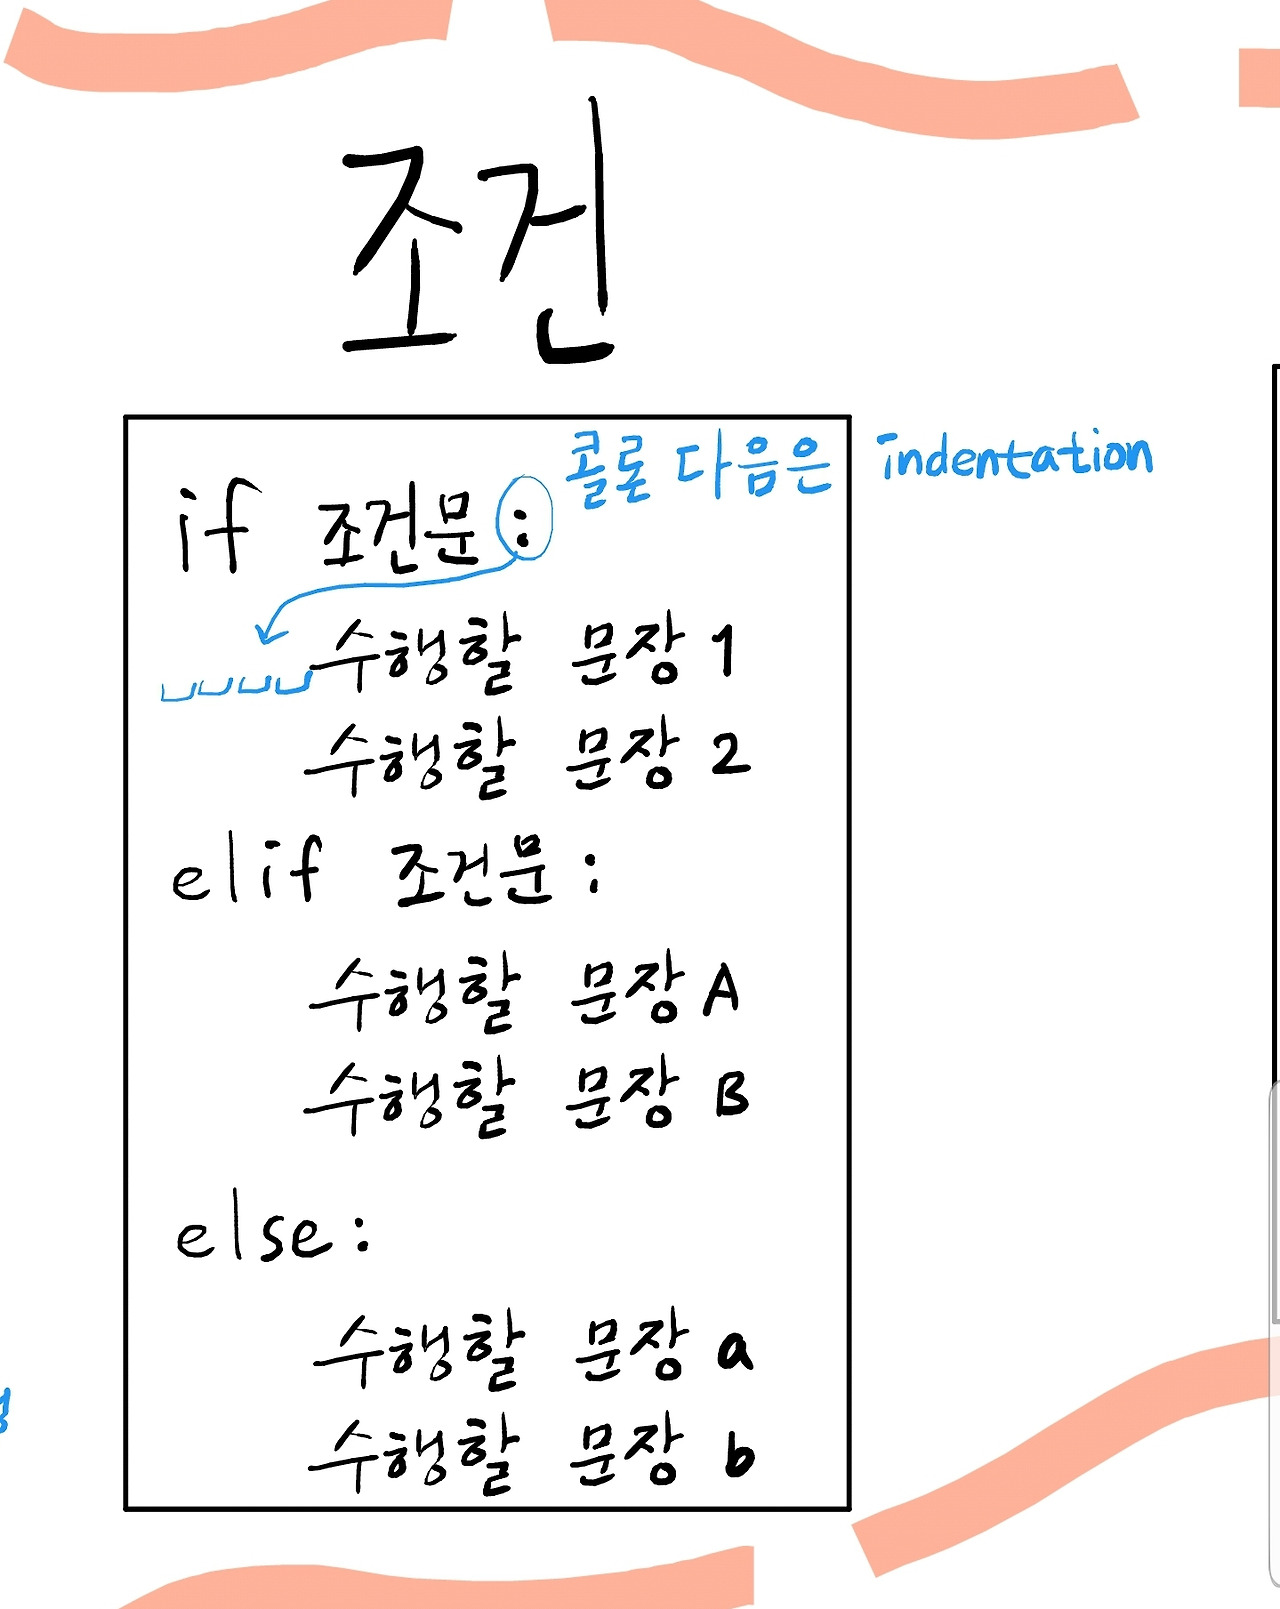 조건
콜론 다음은 indentation
if 조건문 :
수행할 문장 1
수행할 문장 2
elif 조건문 :
수행할 문장 A
수행할 문장 B
else :
수행할 문장 a
수행할 문장 b